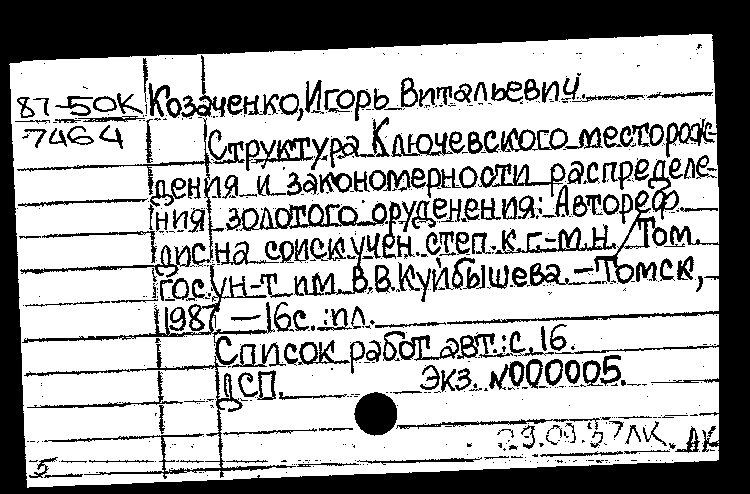 87-50К Козаченко, Игорь Витальевич.
7464 Структура Ключевского месторож-
дения и закономерности распределе-
ния золотого оруденения: Автореф.
дис. на соиск. учен. степ. к.г.-м.н. / Том.
гос. ун-т им. В.В.Куйбышева. – Томск,
1987 – 16с. : ил.
Список работ авт.: с. 16.
ДСП. Экз. №000005.
23.09.87 ЛК. АК
5